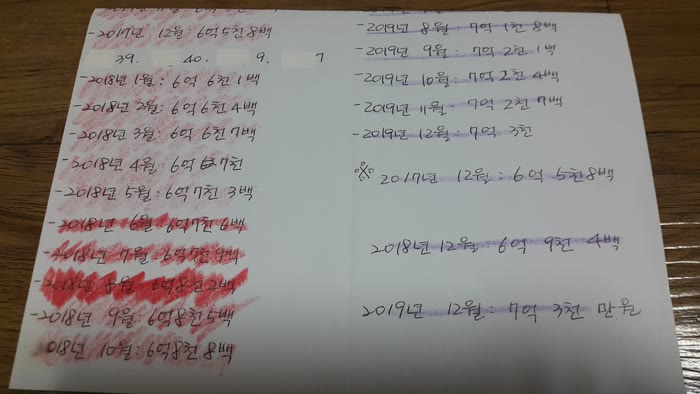 - 2017년 12월 : 6억 5천 8백
39. 40. 9. 7
- 2018년 1월 : 6억 6천 1백
- 2018년 2월 : 6억 6천 4백
- 2018년 3월 : 6억 6천 7백
- 2018년 4월 : 6억 7천
- 2018년 5월 : 6억 7천 3백
- 2018년 6월 : 6억 7천 6백
- 2018년 7월 : 6억 7천 9백
- 2018년 8월 : 6억 8천 2백
- 2018년 9월 : 6억 8천 5백
018년 10월 : 6억 8천 8백
- 2019년 8월 : 7억 1천 8백
- 2019년 9월 : 7억 2천 1백
- 2019년 10월 : 7억 2천 4백
- 2019년 11월 : 7억 2천 7백
- 2019년 12월 : 7억 3천
※ 2017년 12월 : 6억 5천 8백
2018년 12월 : 6억 9천 4백
2019년 12월 : 7억 3천 만원